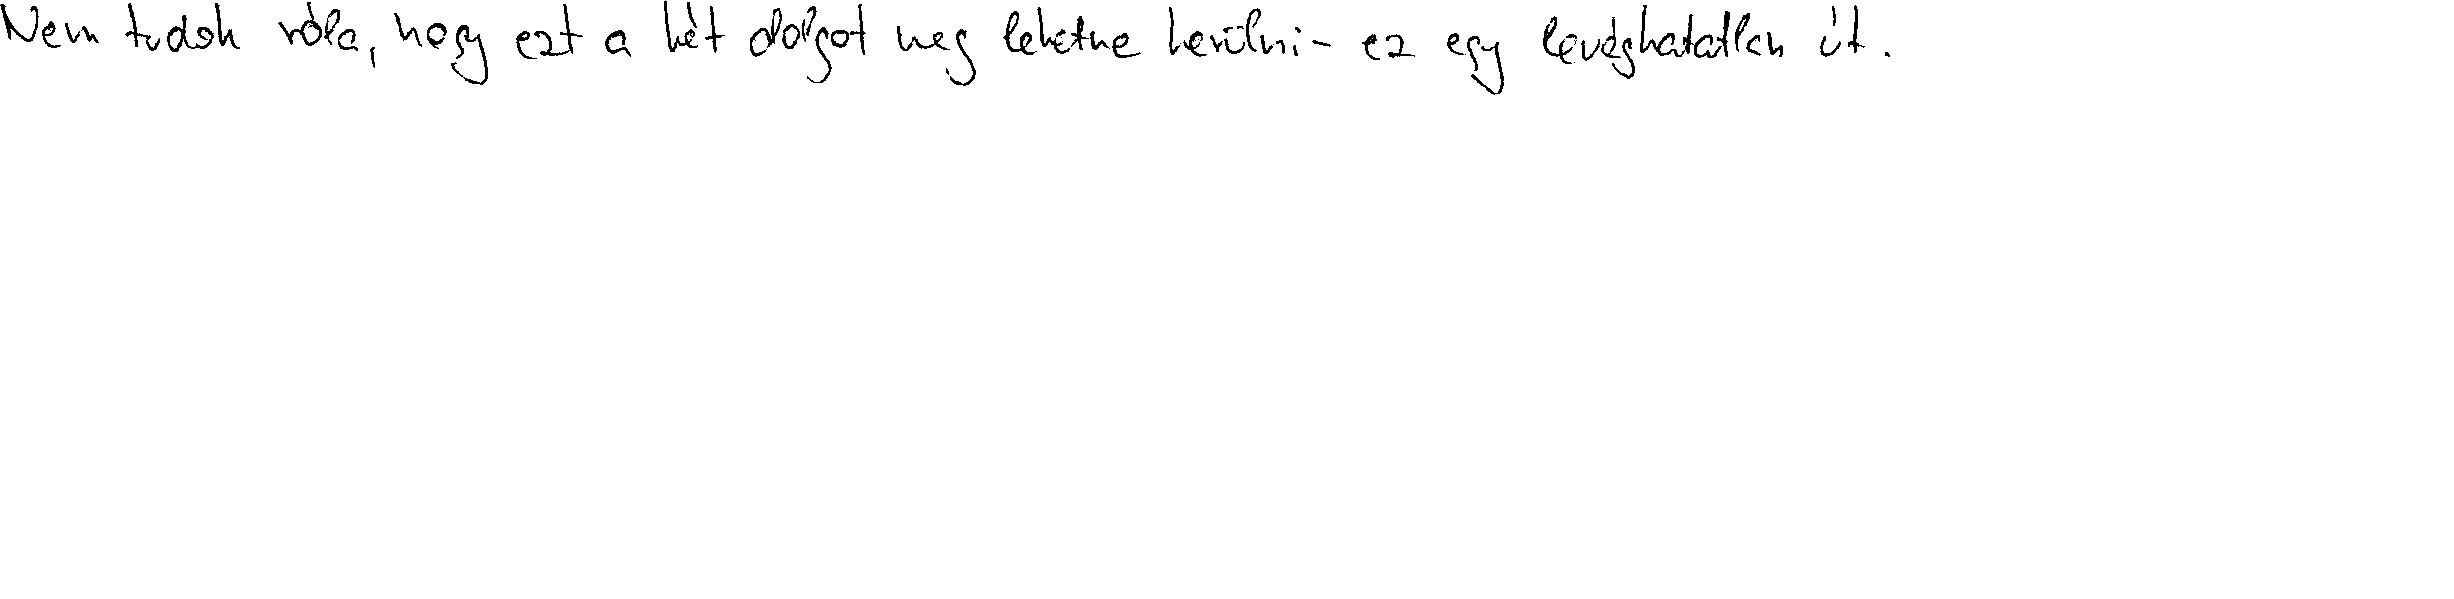 Nem tudok róla, hogy ezt a két dolgot meg lehetne kerülni - ez egy levághatatlan út.